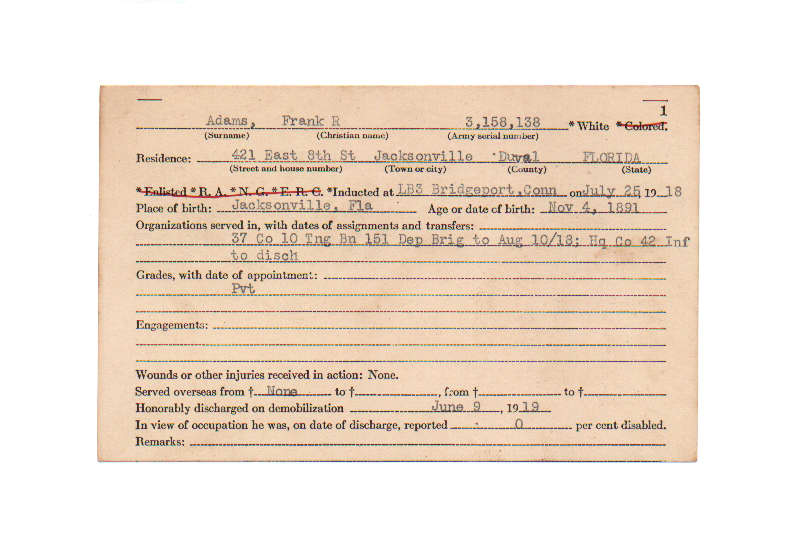 1
Adams, Frank R 3,158,138 * White * Colored.
(Surname) (Christian name) (Army serial number)
Residence: 421 East 8th St Jacksonville Duval FLORIDA
(Street and house number) (Town or city) (County) (State)
*Enlisted *R. A. *N. G. *E. R. C. *Inducted at LB3 Bridgeport,Conn on July 25, 19 18
Place of birth: Jacksonville, Fla Age or date of birth: Nov 4, 1891
Organizations served in, with dates of assignments and transfers:
37 Co 10 Tng Bn 151 Dep Brig to Aug 10/18; Hq Co 42 Inf
to disch
Grades, with date of appointment:
Pvt
Engagements:
Wounds or other injuries received in action: None.
Served overseas from † None to †, from † to †
Honorably discharged on demobilization June 9, 19 19
In view of occupation he was, on date of discharge, reported 0 per cent disabled.
Remarks: